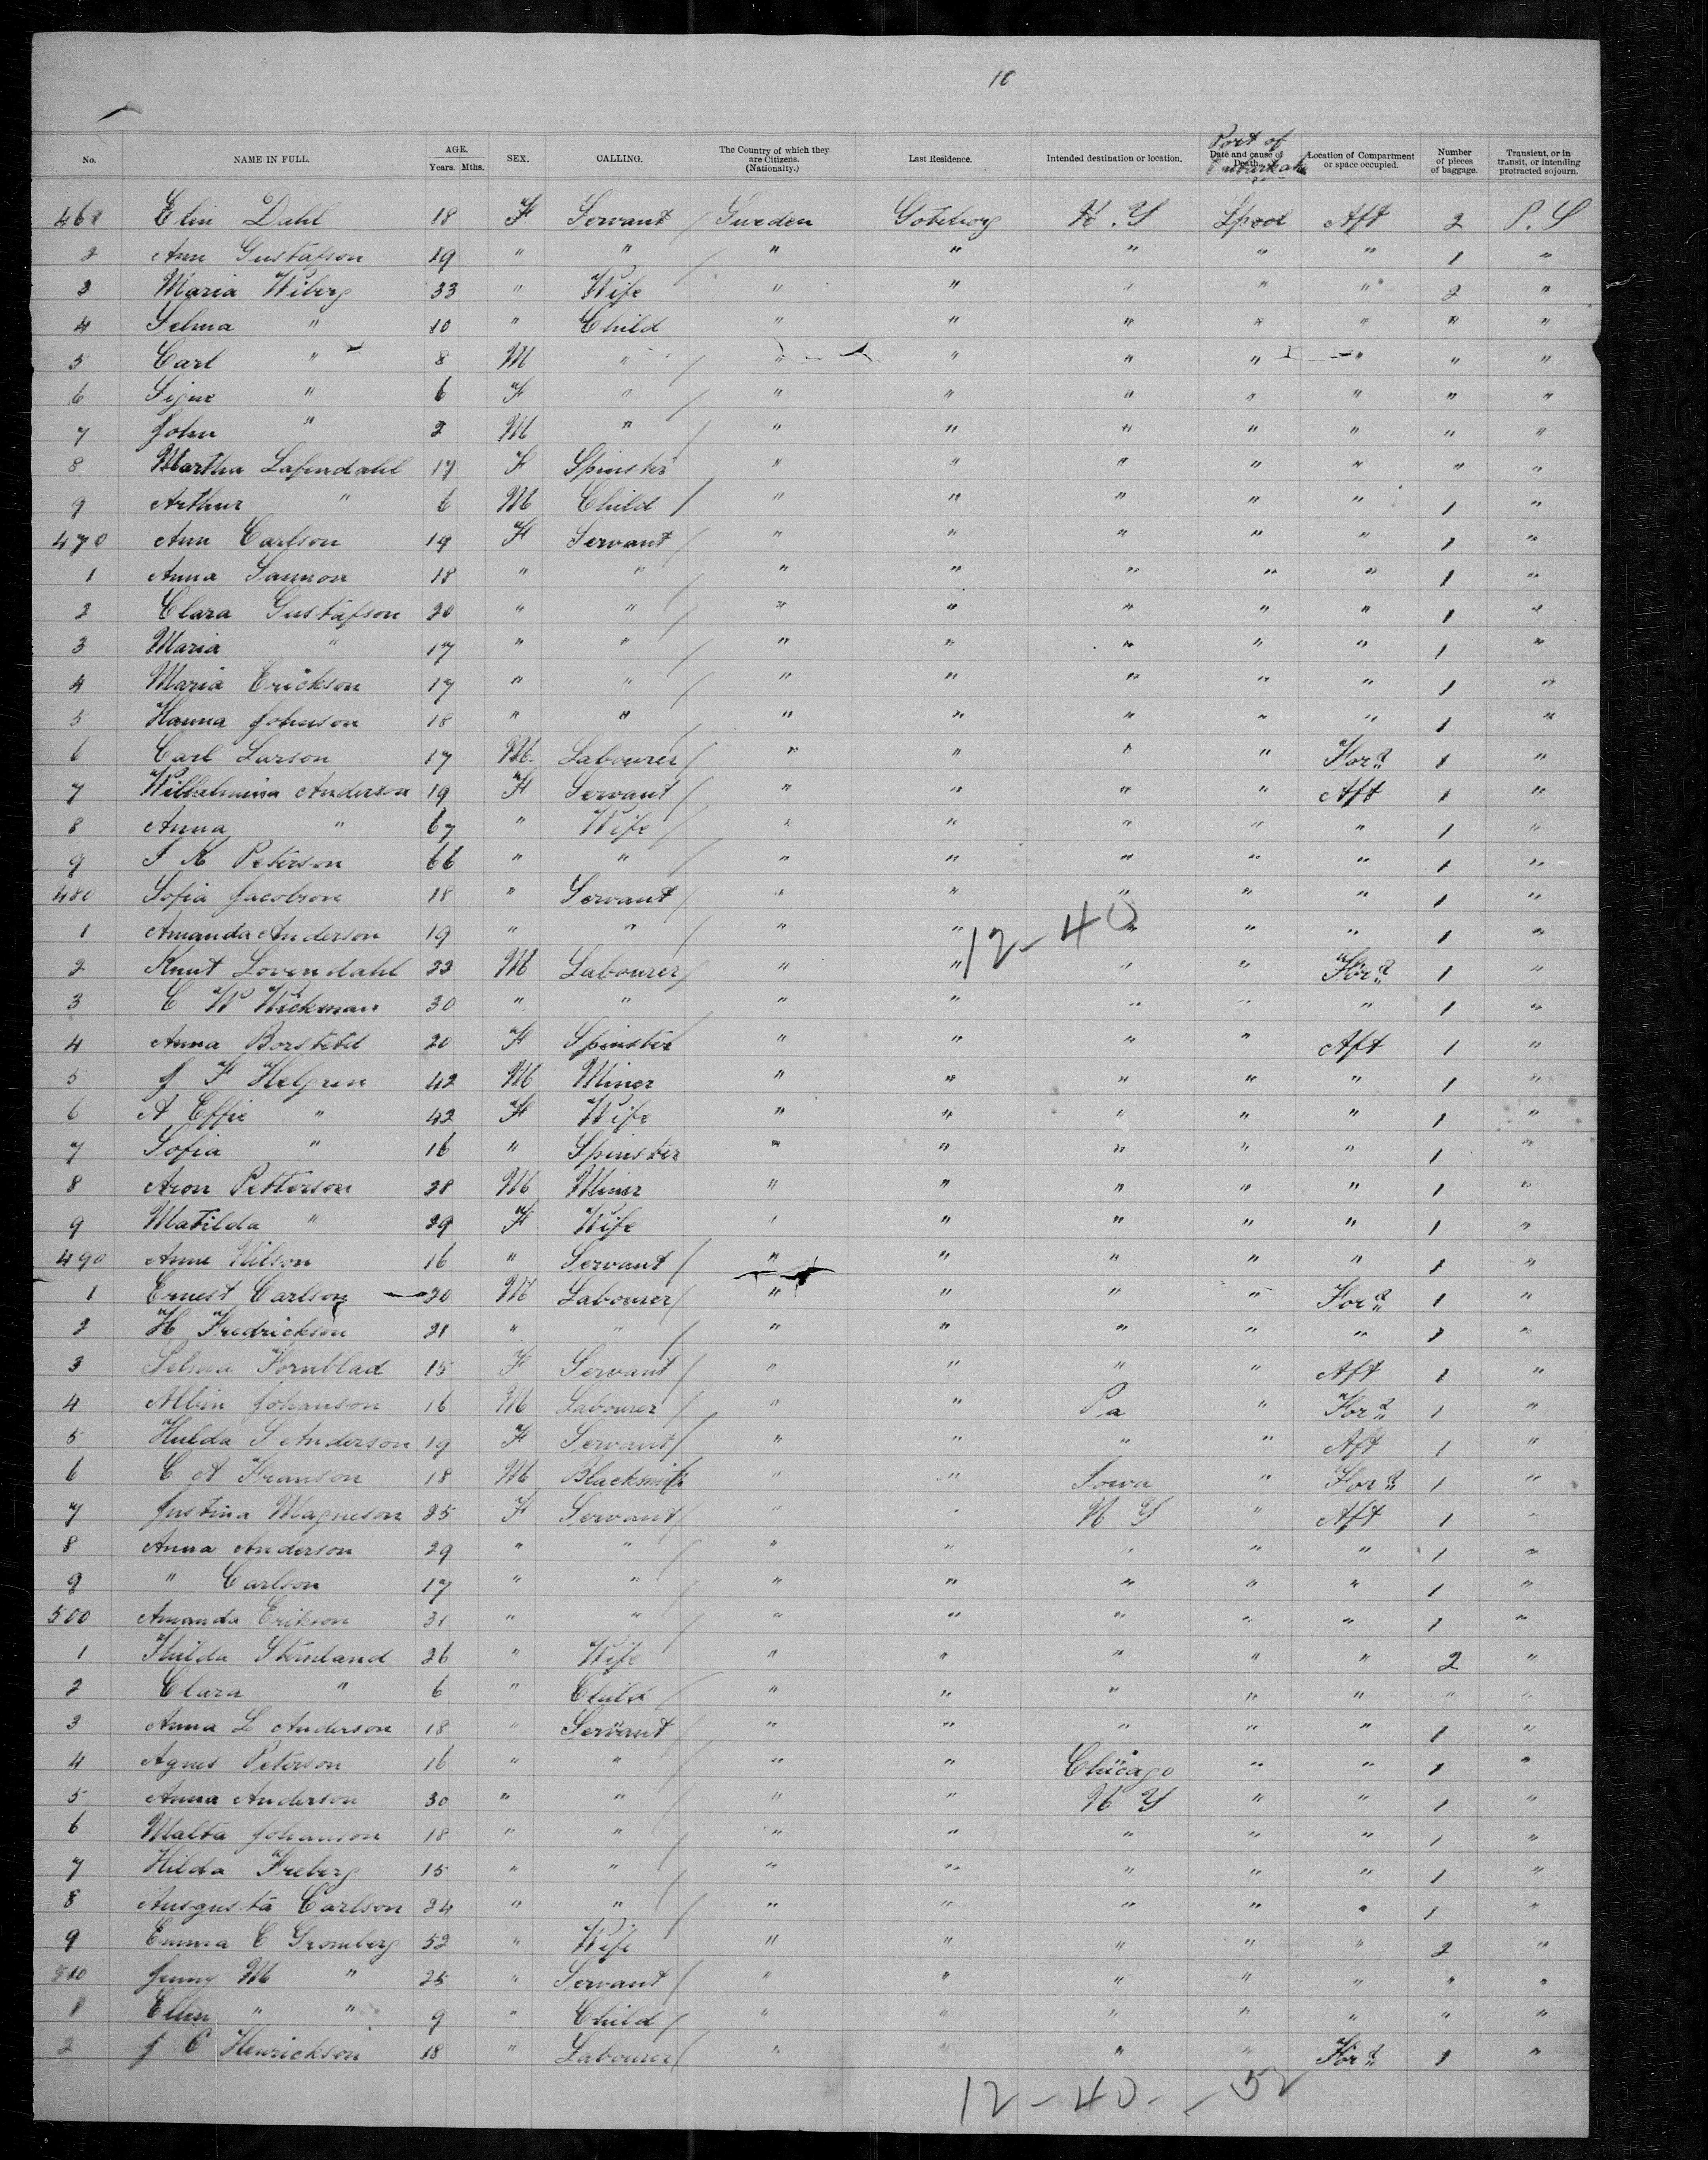 10
No. NAME IN FULL. AGE. Years. Mths. SEX. CALLING. The Country of which they are Citizens. (Nationality.) Last Residence. Intended destination or location. Date and cause of Death. Port of Embarkatn Location of Compartment or space occupied. Number of pieces of baggage. Transient, or in transit, or intending protracted sojourn.
461 Elin Dahl 18 F Servant / Sweden Goteborg N.Y Lpool Aft 2 P.S
2 Ann Gustafson 19 " " / " " " " " 1 "
3 Maria Wiberg 33 " Wife " " " " " 2 "
4 Selma " 10 " Child " " " " " " "
5 Carl " 8 M " / " " " " " " "
6 Signe " 6 F " / " " " " " " "
7 John " 2 M " / " " " " " " "
8 Martha Lafendahl 17 F Spinster " " " " " " "
9 Arthur " 6 M Child / " " " " " 1 "
470 Ann Carlson 19 F Servant / " " " " " 1 "
1 Anna Samson 18 " " / " " " " " 1 "
2 Clara Gustafson 20 " " / " " " " " 1 "
3 Maria " 17 " " / " " " " " 1 "
4 Maria Erickson 17 " " / " " " " " 1 "
5 Hanna Johnson 18 " " / " " " " " 1 "
6 Carl Larson 17 M. Labourer / " " " " Ford 1 "
7 Wilhelmina Anderson 19 F Servant / " " " " Aft 1 "
8 Anna " 67 " Wife / " " " " " 1 "
9 S K Peterson 66 " " / " " " " " 1 "
480 Sofia Jacobson 18 " Servant / " " " " " 1 "
1 Amanda Anderson 19 " " / " " " " " 1 "
12-40
2 Knut Lovendahl 22 M Labourer / " " " " Ford 1 "
3 C W Wickman 30 " " " " " " " 1 "
4 Anna 20 F Spinster " " " " Aft 1 "
5 J F Helgren 42 M Miner " " " " " 1 "
6 A Effie " 42 F Wife " " " " " 1 "
7 Sofia " 16 " Spinster " " " " " 1 "
8 Aron Petterson 28 M Miner " " " " " 1 "
9 Matilda " 29 F Wife " " " " " 1 "
490 Anne Nilson 16 " Servant / " " " " " 1 "
1 Ernest Carlson 20 M Labourer / " " " " Ford 1 "
2 H Fredrickson 21 " " / " " " " " 1 "
3 Selma Fornblad 15 F Servant / " " " " Aft 1 "
4 Albin Johanson 16 M Labourer / " " Pa " Ford 1 "
5 Hulda S Anderson 19 F Servant / " " " " Aft 1 "
6 C A Franson 18 M Blacksmith " " Iowa " Ford 1 "
7 Justina Magneson 25 F Servant / " " N Y " Aft 1 "
8 Anna Anderson 29 " " / " " " " " 1 "
9 " Carlson 17 " " / " " " " " 1 "
500 Amanda Erikson 31 " " / " " " " " 1 "
1 Thilda Sternland 26 " Wife " " " " " 2 "
2 Clara " 6 " Child / " " " " " " "
3 Anna L Anderson 18 " Servant / " " " " " 1 "
4 Agnes Peterson 16 " " / " " Chicago " " 1 "
5 Anna Anderson 30 " " / " " N Y " " 1 "
6 Malta Johanson 18 " " / " " " " " 1 "
7 Hilda Freberg 15 " " / " " " " " 1 "
8 Ausgusta Carlson 24 " " / " " " " " 1 "
9 Emma C Gromberg 52 " Wife " " " " " 2 "
510 Jenny M " 25 " Servant / " " " " " " "
1 Ellen " " 9 " Child / " " " " " " "
2 J C Henrickson 18 " Labourer / " " " " Ford 1 "
12-40- -52